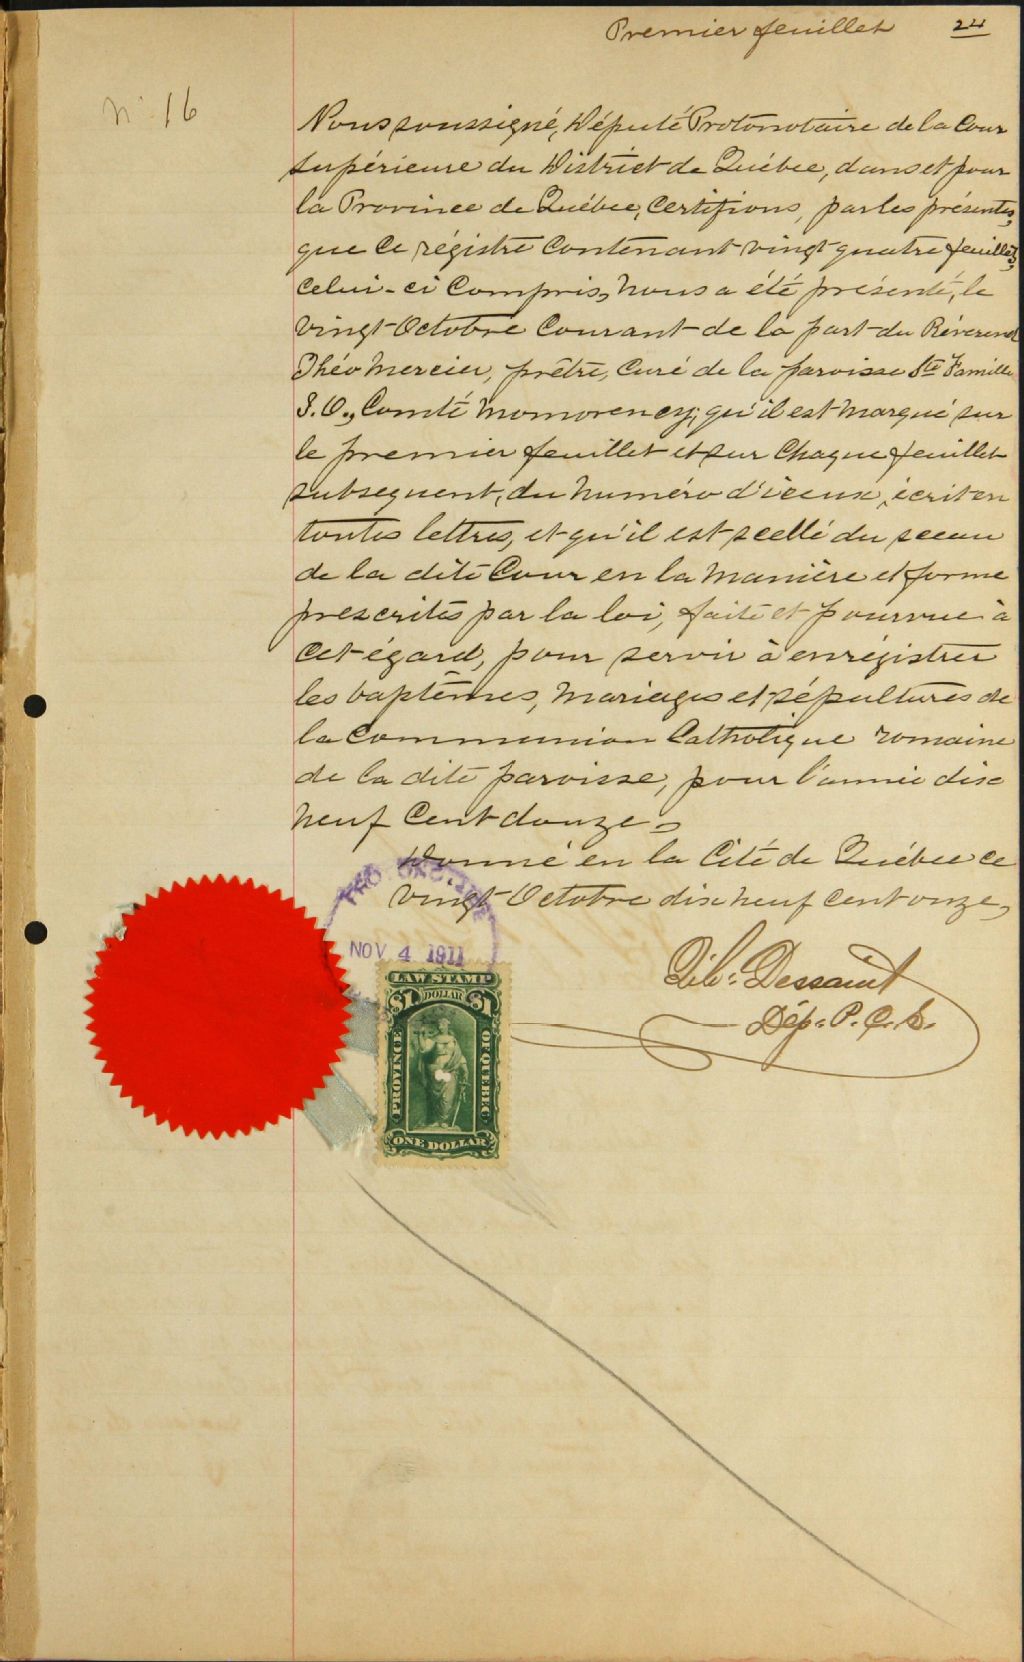 Premier feuillet 24
No 16
Nous soussigné, Député Protonotaire de la Cour
Supérieure du District de Québec, dans et pour
la Province de Québec, Certifions, par les présentes,
que ce régistre contenant vingt quatre feuillets,
celui-ci compris, nous a été présenté, le
vingt Octobre courant de la part du Réverend
Théo Mercier, prêtre, curé de la paroisse Ste Famille
I.O., Comté Momorency; qu'il est marqué sur
le premier feuillet et sur chaque feuillet
subséquent, du numéro d'iceux, écrit en
toutes lettres, et qu'il est scellé du sceau
de la dite Cour en la manière et forme
prescrites par la loi, faite et pourvue à
cet égard, pour servir à enrégistrer
les baptêmes, mariages et sépultures de
la Communion Catholique romaine
de la dite paroisse, pour l'année dix
neuf cent douze.
Donné en la Cité de Québec ce
vingt Octobre dix neuf cent onze,
PROTONOTAIRE
NOV 4 1911
Dessaint
Dép. P. C. S.
LAW STAMP
$1 DOLLAR $1
PROVINCE OF QUEBEC
ONE DOLLAR